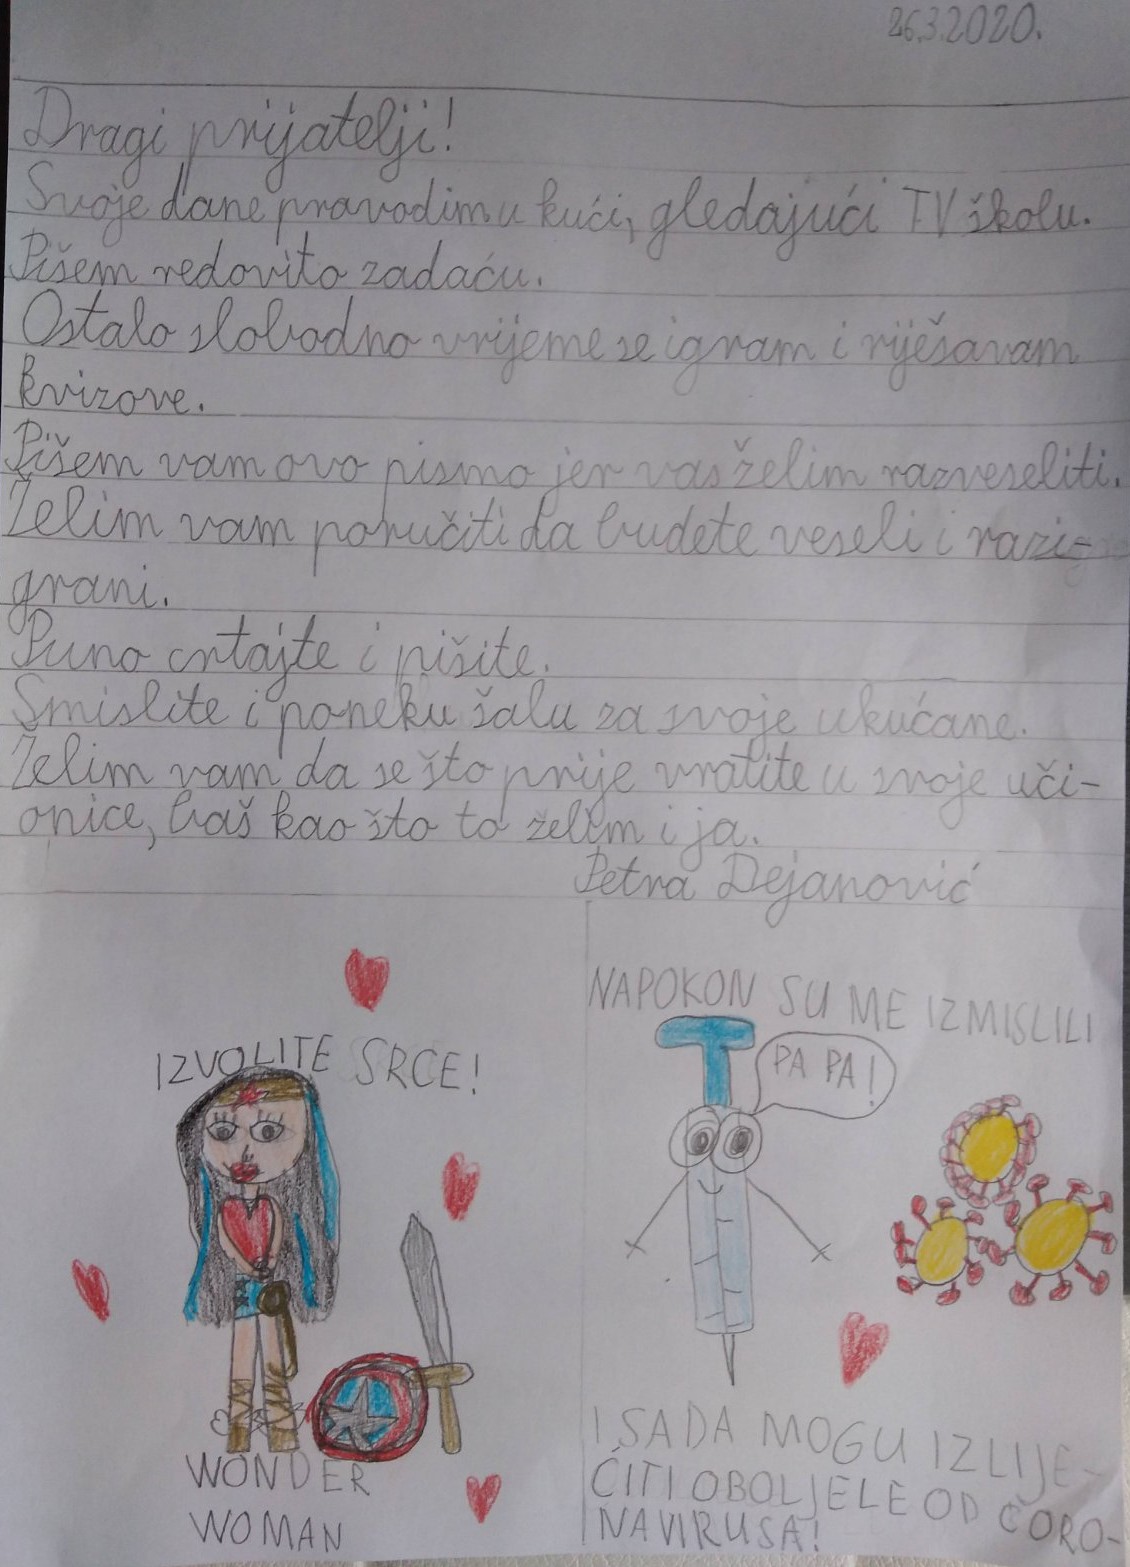 26.3.2020.
Dragi prijatelji!
Svoje dane provodim u kući, gledajući TV školu.
Pišem redovito zadaću.
Ostalo slobodno vrijeme se igram i riješavam
kvizove.
Pišem vam ovo pismo jer vas želim razveseliti.
Želim vam poručiti da budete veseli i razi-
grani.
Puno crtajte i pišite.
Smislite i poneku šalu za svoje ukućane.
Želim vam da se što prije vratite u svoje uči-
onice, baš kao što to želim i ja.
Petra Dejanović
IZVOLITE SRCE!
WONDER
WOMAN
NAPOKON SU ME IZMISLILI
PA PA!
I SADA MOGU IZLIJE-
ĆITI OBOLJELE OD CORO-
NAVIRUSA!